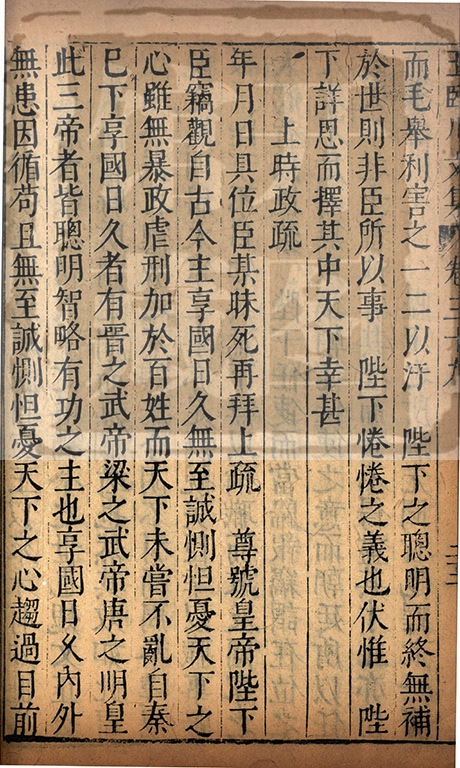 王臨川文集 卷三十九
而毛舉利害之一二以汙 陛下之聰明而終無補
於世則非臣所以事 陛下惓惓之義也伏惟 陛
下詳思而擇其中天下幸甚
上時政疏
年月日具位臣某昧死再拜上疏 尊號皇帝陛下
臣竊觀自古今主享國日久無至誠惻怛憂天下之
心雖無暴政虐刑加於百姓而天下未嘗不亂自秦
已下享國日久者有晋之武帝梁之武帝唐之明皇
此三帝者皆聰明智略有功之主也享國日久内外
無患因循苟且無至誠惻怛憂天下之心趨過目前